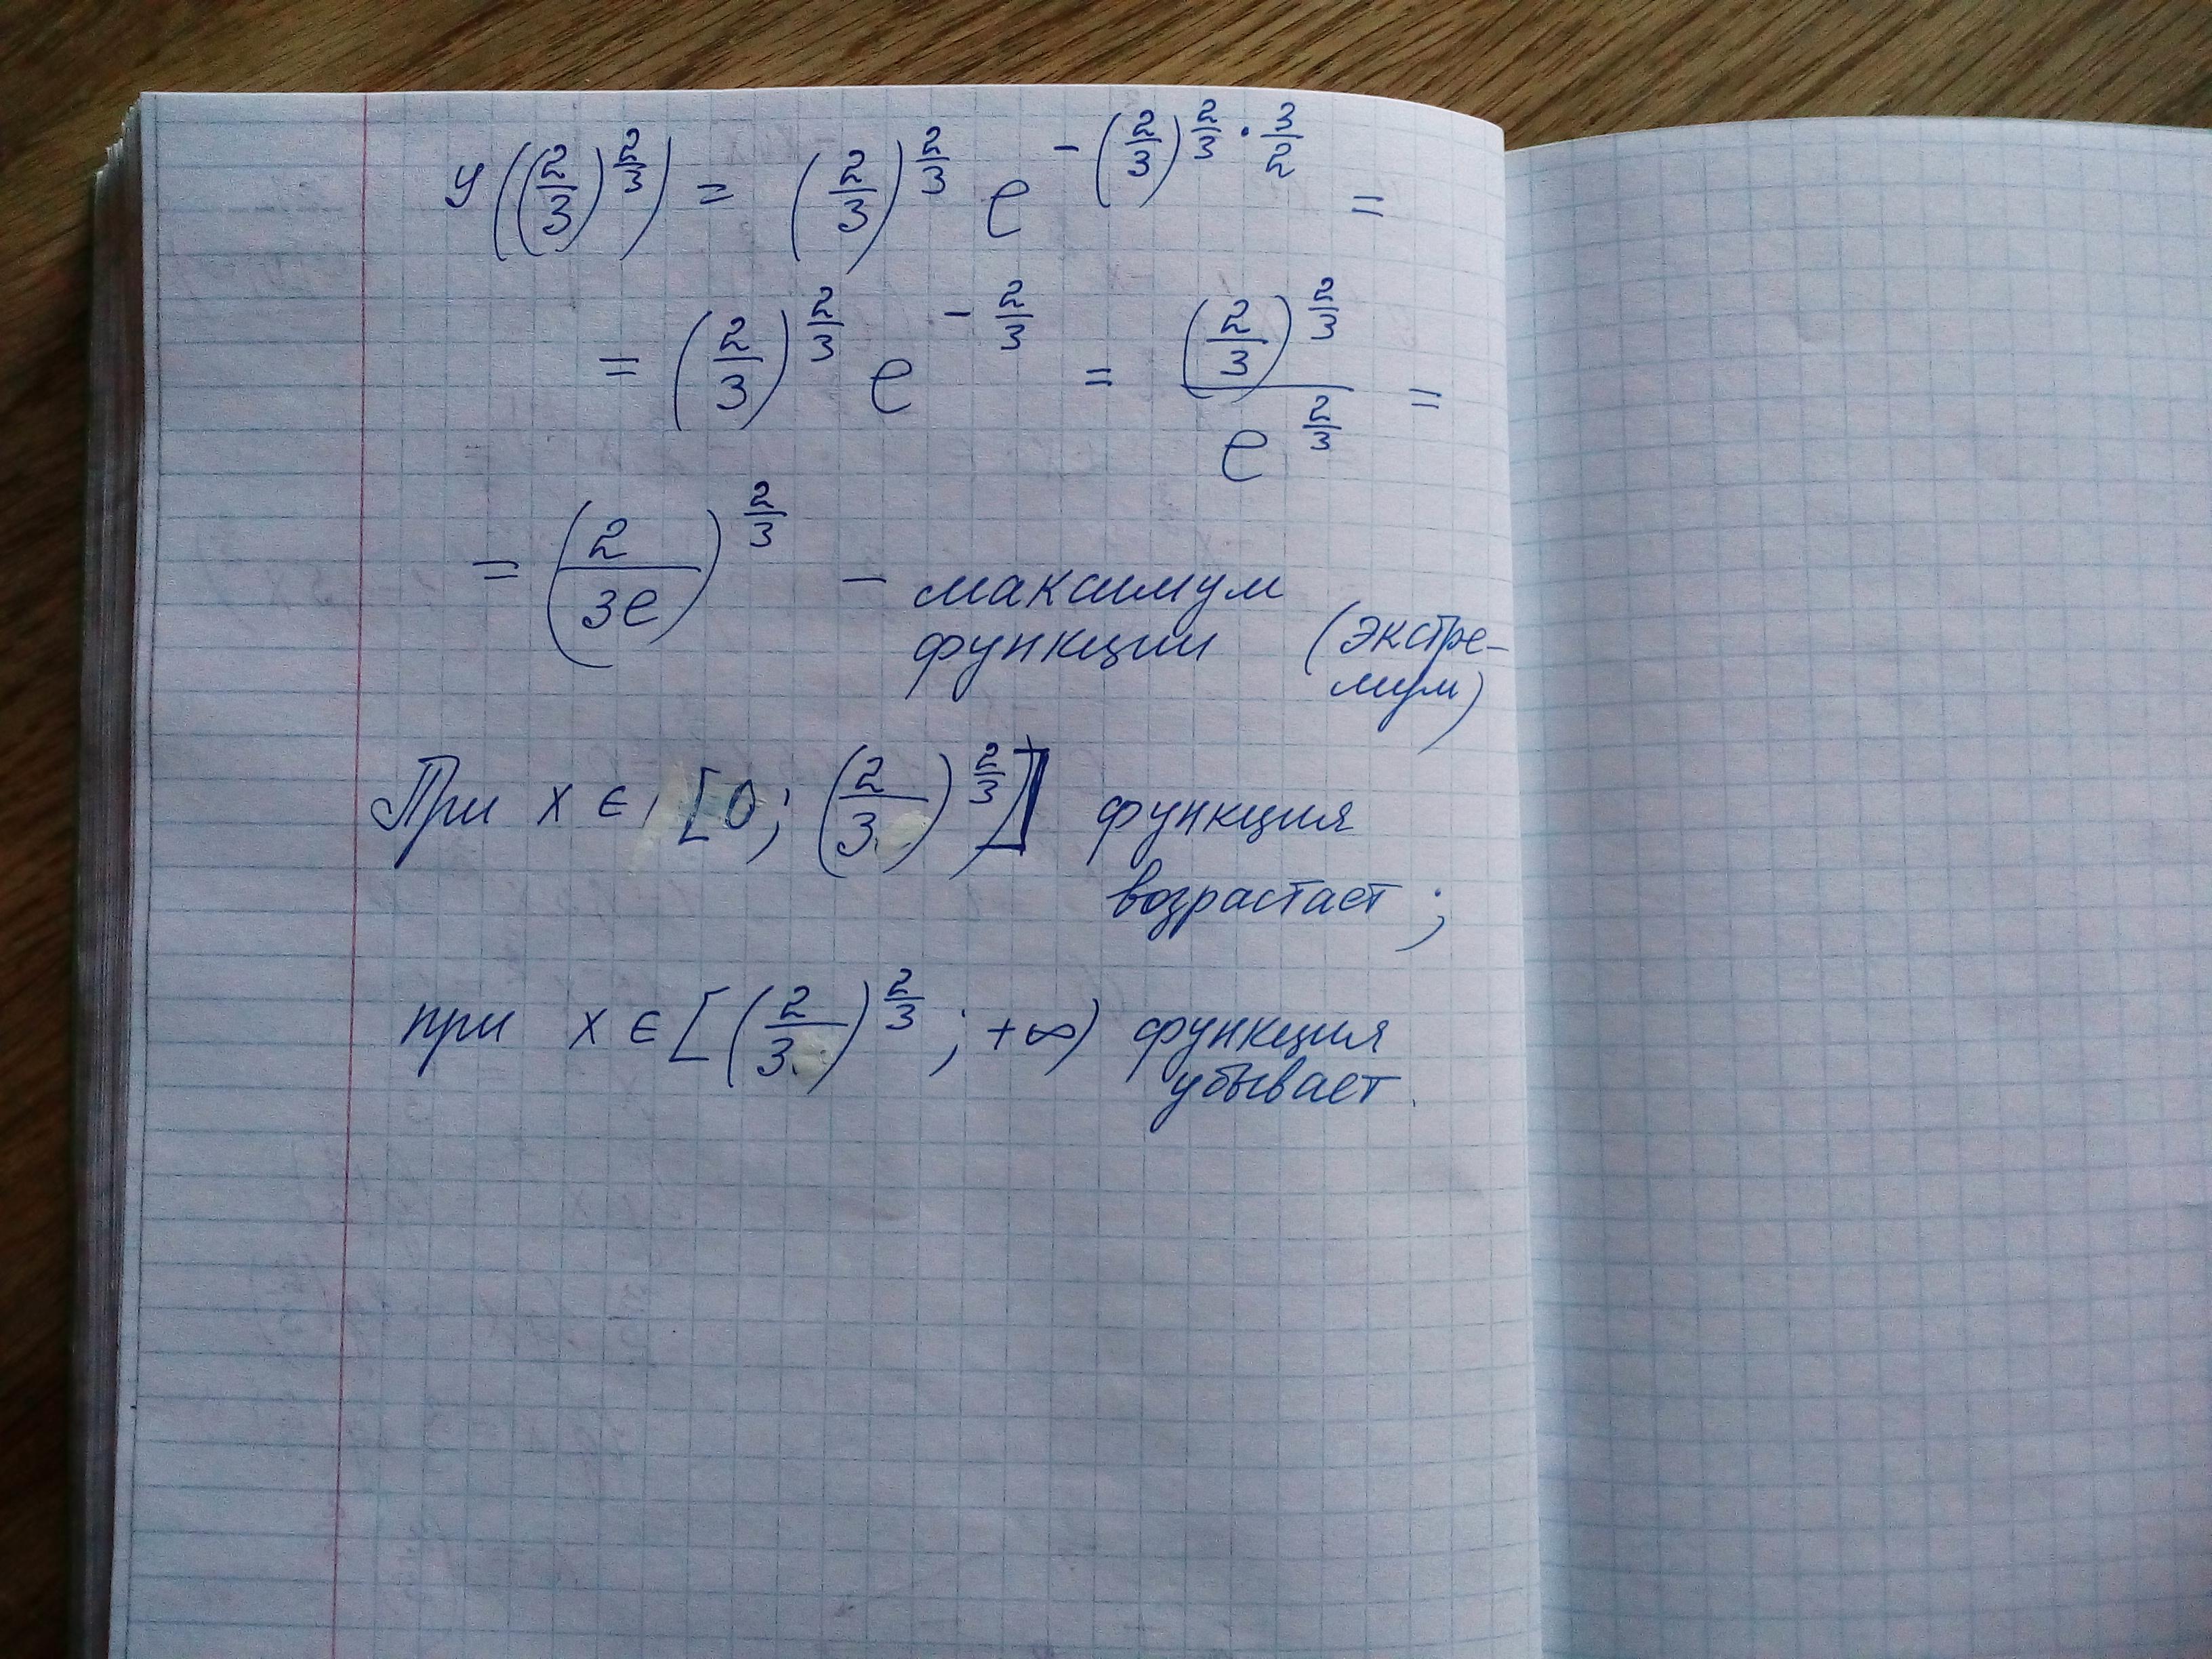 y((2/3)^(2/3)) = (2/3)^(2/3) e^(-(2/3)^(2/3 · 3/2)) =
= (2/3)^(2/3) e^(-2/3) = (2/3)^(2/3) / e^(2/3) =
= (2/3e)^(2/3) – максимум
функции (экстре-
мум)
При x ∈ [0; (2/3)^(2/3)] функция
возрастает;
при x ∈ [(2/3)^(2/3); +∞) функция
убывает.